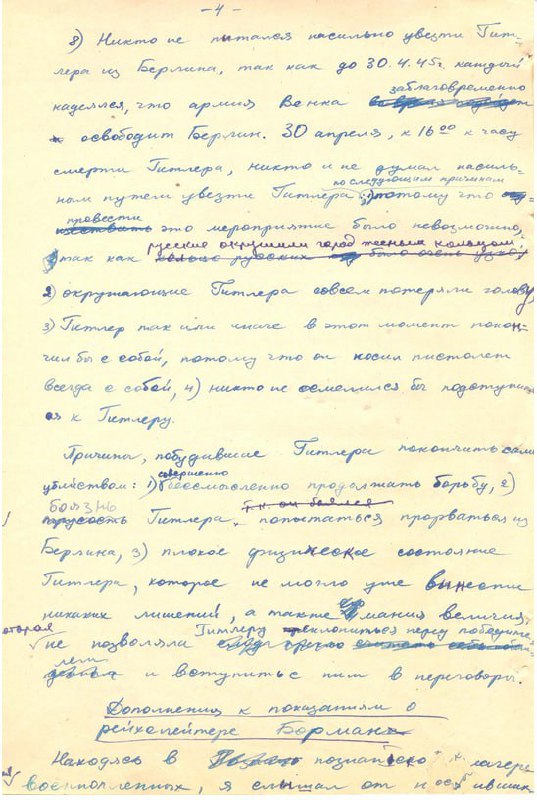 - 4 -
8) Никто не пытался насильно увезти Гит-
лера из Берлина, так как до 30.4.45г. каждый
заблаговременно
надеялся, что армия Венка
освободит Берлин. 30 апреля, к 16⁰⁰ к часу
смерти Гитлера, никто и не думал насиль-
по следующим причинам
ным путем увезти Гитлера: 1) потому что
провести
это мероприятие было невозможно,
русские окружили город тесным кольцом
так как кольцо русских было очень узко,
2) окружающие Гитлера совсем потеряли голову,
3) Гитлер так или иначе в этот момент покон-
чил бы с собой, потому что он носил пистолет
всегда с собой, 4) никто не осмелился бы подступить-
ся к Гитлеру.
Причины, побудившие Гитлера покончить само
совершенно
убийством: 1) бессмысленно продолжать борьбу, 2)
боязнь т.к. он боялся
трусость Гитлера попытаться прорваться из
Берлина, 3) плохое физическое состояние
Гитлера, которое не могло уже вынести
никаких лишений, а также его мания величия,
которая Гитлеру преклониться перед победите-
не позволяла
лем
и вступить с ним в переговоры.
Дополнения к показаниям о
рейхслейтере Бормане
Находясь в познанском лагере
военнопленных, я слышал от